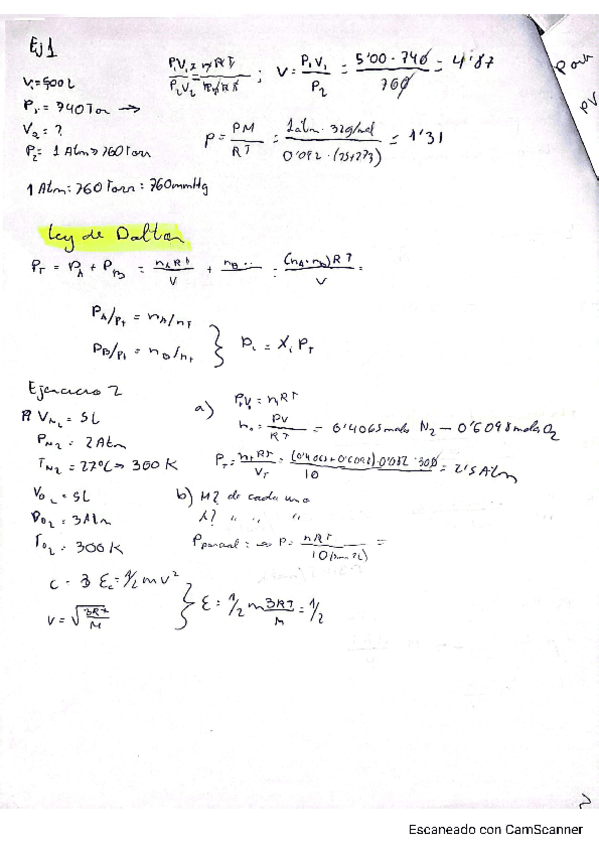 Ej 1
V₁ = 500 L
P₁ = 740 Torr →
V₂ = ?
P₂ = 1 Atm → 760 Torr
1 Atm = 760 Torr = 760 mmHg
P₁V₁ = nRT / P₂V₂ = nRT ; V = P₁V₁ / P₂ = 5'00 · 740 / 760 = 4'87
ρ = PM / RT = 1 atm · 32 g/mol / 0'092 · (25+273) = 1'31
PV
Ley de Dalton
P_T = P_A + P_B = n_A RT / V + n_B ·· = (n_A + n_B) RT / V =
P_A/P_T = n_A/n_T
P_B/P_T = n_B/n_T } P_i = X_i P_T
Ejercicio 2
V_N₂ = 5L
P_N₂ = 2 Atm
T_N₂ = 27ºC → 300 K
V_O₂ = 5L
P_O₂ = 3 Atm
T_O₂ = 300 K
a) PV = nRT
n = PV / RT = 0'4065 moles N₂ — 0'6098 moles O₂
P_T = n_T RT / V_T = (0'4065 + 0'6098) · 0'082 · 300 / 10 = 2'5 Atm
b) M? de cada uno
X? " " "
P parcial : → P = nRT / 10 =
c - Ec = 1/2 m v²
v = √3RT / M } E = 1/2 m 3RT / M = 1/2
2
Escaneado con CamScanner